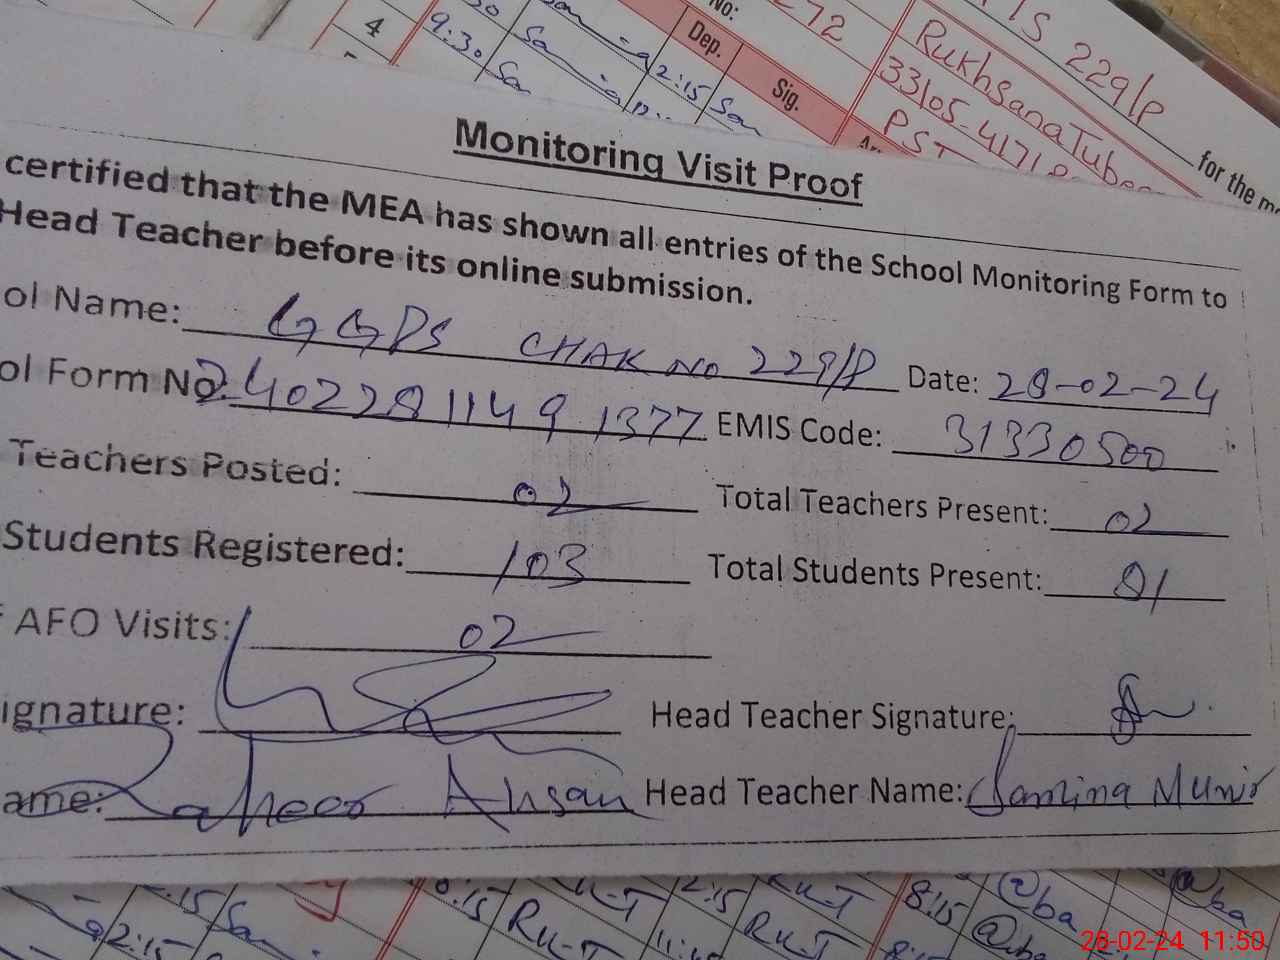 4
9:30
2:15
No:
272
Dep.
Sig.
229/P
Rukhsana
33105-4171
PST
for the
Monitoring Visit Proof
certified that the MEA has shown all entries of the School Monitoring Form to
Head Teacher before its online submission.
ol Name: GGPS CHAK NO 229/P Date: 28-02-24
ol Form No. 2402281149 1377 EMIS Code: 31330500
Teachers Posted: 02 Total Teachers Present: 02
Students Registered: 103 Total Students Present: 81
AFO Visits: 02
ignature: Head Teacher Signature:
ame: Zaheer Ahsan Head Teacher Name: Samina Munir
2:15 Ru-T 2:15 Ru-T 8:15
2:15 Ru-T Ru-T
28-02-24 11:50